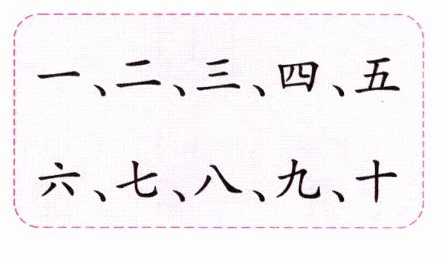 一、二、三、四、五
六、七、八、九、十